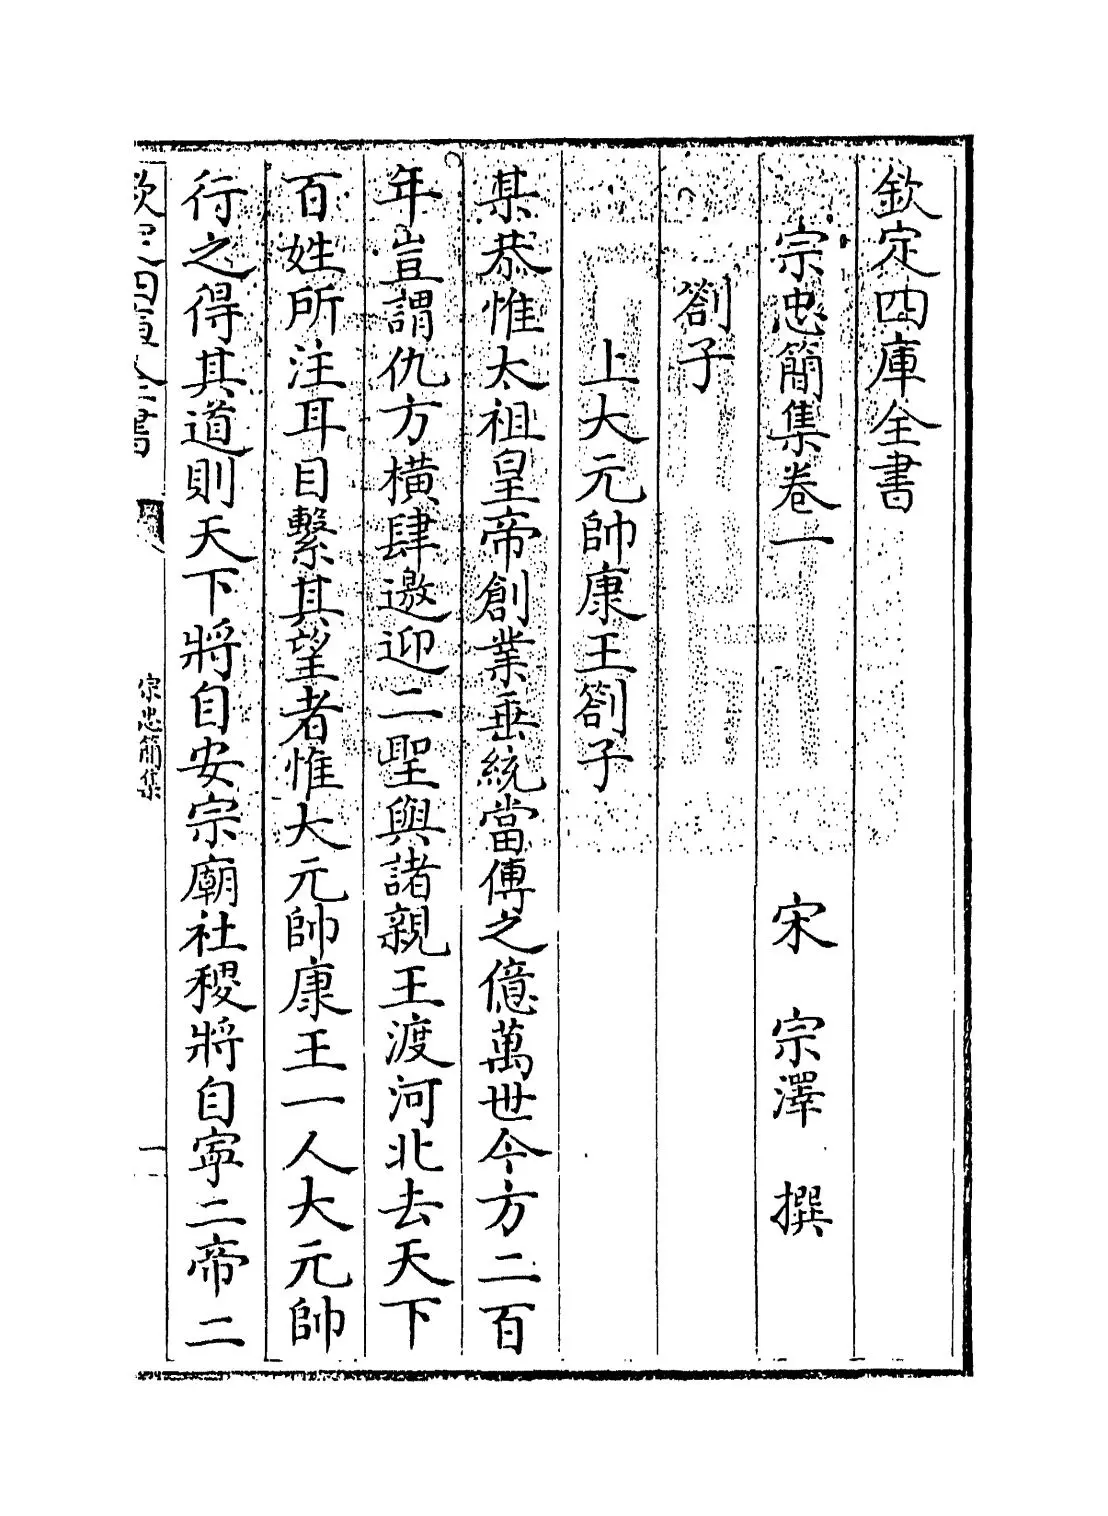 欽定四庫全書
宗忠簡集卷一 宋 宗澤 撰
劄子
上大元帥康王劄子
某恭惟太祖皇帝創業垂統當傳之億萬世今方二百
年豈謂仇方橫肆邀迎二聖與諸親王渡河北去天下
百姓所注耳目繫其望者惟大元帥康王一人大元帥
行之得其道則天下將自安宗廟社稷將自寧二帝二
欽定四庫全書 宗忠簡集 一